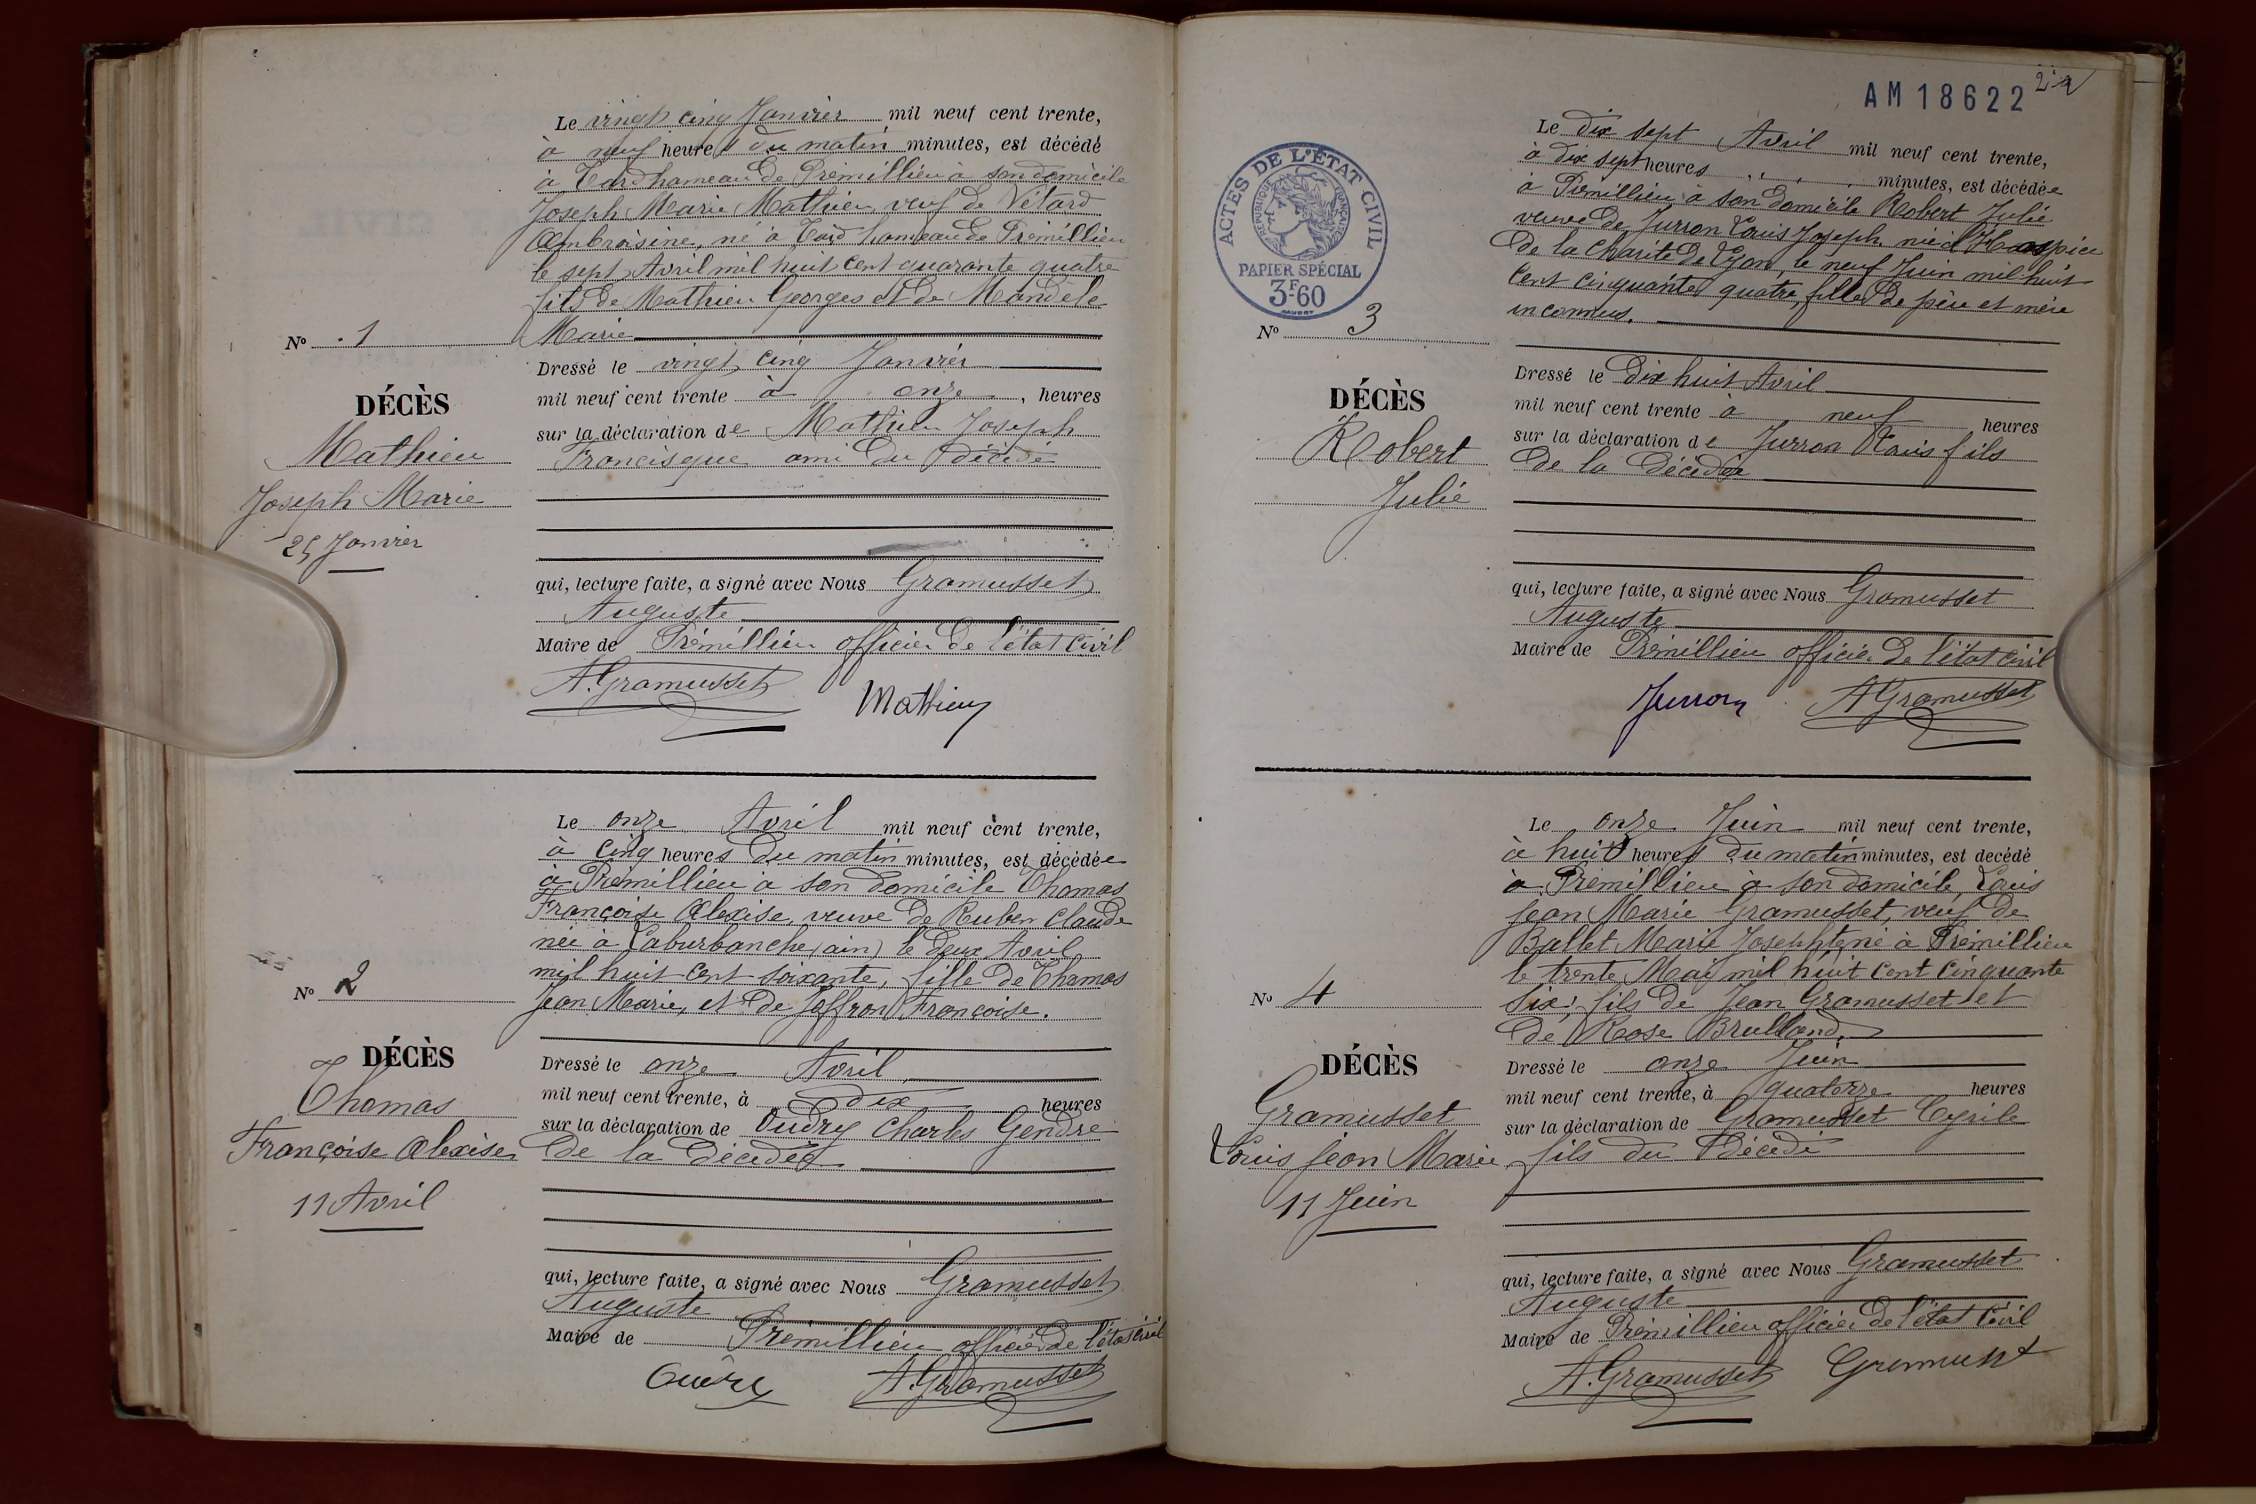 Le vingt cinq Janvier mil neuf cent trente,
à neuf heures du matin minutes, est décédé
à hameau de Prémillieu à son domicile
Joseph Marie Mathieu, veuf de Vétard
Ambroisine, né à hameau de Prémillieu
le sept Avril mil huit cent quarante quatre
fils de Mathieu Georges et de
Marie
No 1
DÉCÈS
Mathieu
Joseph Marie
25 Janvier
Dressé le vingt cinq Janvier
mil neuf cent trente à onze, heures
sur la déclaration de Mathieu Joseph
Francisque ami du décédé
qui, lecture faite, a signé avec Nous Gramusset
Auguste
Maire de Prémillieu officier de l'état civil
A. Gramusset Mathieu
Le onze Avril mil neuf cent trente,
à cinq heures du matin minutes, est décédée
à Prémillieu à son domicile Thomas
Françoise Alexise, veuve de Ruber Claude
née à Laburbanche (ain) le deux Avril
mil huit cent soixante, fille de Thomas
Jean Marie, et de Joffron Françoise.
No 2
DÉCÈS
Thomas
Françoise Alexise
11 Avril
Dressé le onze Avril,
mil neuf cent trente, à dix heures
sur la déclaration de Oudry Charles Gendre
de la décédée
qui, lecture faite, a signé avec Nous Gramusset
Auguste
Maire de Prémillieu officier de l'état civil
Oudry A. Gramusset
AM 18622
ACTES DE L'ÉTAT CIVIL
RÉPUBLIQUE FRANÇAISE
PAPIER SPÉCIAL
3F.60
Le dix sept Avril mil neuf cent trente,
à dix sept heures minutes, est décédée
à Prémillieu à son domicile Robert Julie
veuve de Jurron Louis Joseph née à l'Hospice
de la Charité de Lyon, le neuf Juin mil huit
cent cinquante quatre, fille de père et mère
inconnus.
No 3
DÉCÈS
Robert
Julie
Dressé le Dix huit Avril
mil neuf cent trente à neuf heures
sur la déclaration de Jurron Louis fils
de la décédée
qui, lecture faite, a signé avec Nous Gramusset
Auguste
Maire de Prémillieu officier de l'état civil
Jurron A Gramusset
Le onze Juin mil neuf cent trente,
à huit heures du matin minutes, est decédé
à Prémillieu à son domicile, Louis
Jean Marie Gramusset, veuf de
Ballet Marie Josephte né à Prémillieu
le trente Mai mil huit cent cinquante
six, fils de Jean Gramusset et
de Rose Brulland.
No 4
DÉCÈS
Gramusset
Louis Jean Marie
11 Juin
Dressé le onze Juin
mil neuf cent trente, à quatorze heures
sur la déclaration de Gramusset Cyrile
fils du Décédé
qui, lecture faite, a signé avec Nous Gramusset
Auguste
Maire de Prémillieu officier de l'état civil
A. Gramusset Gramusset